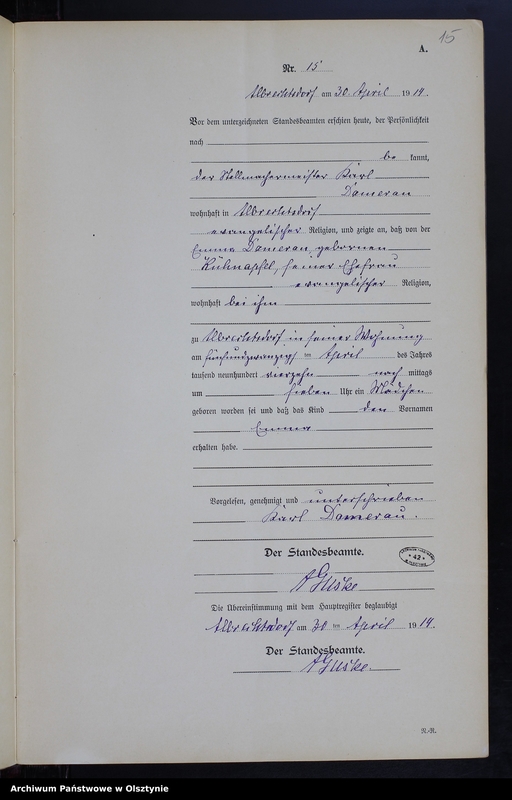 15
A.
Nr. 15
Albrechtsdorf am 30. April 1914.
Vor dem unterzeichneten Standesbeamten erschien heute, der Persönlichkeit
nach
be kannt,
der Stellmachermeister Karl
Damerau
wohnhaft in Albrechtsdorf
evangelischer Religion, und zeigte an, daß von der
Emma Damerau, gebornen
Kuhnapfel, seiner Ehefrau
evangelischer Religion,
wohnhaft bei ihm
zu Albrechtsdorf in seiner Wohnung
am fünfundzwanzigsten April des Jahres
tausend neunhundert vierzehn nach mittags
um sieben Uhr ein Mädchen
geboren worden sei und daß das Kind den Vornamen
Emma
erhalten habe.
Vorgelesen, genehmigt und unterschrieben
Karl Damerau.
Der Standesbeamte.
* 42 *
A Guske
Die Übereinstimmung mit dem Hauptregister beglaubigt
Albrechtsdorf am 30 ten April 1914.
Der Standesbeamte.
A Guske.
N.-R.
Archiwum Państwowe w Olsztynie